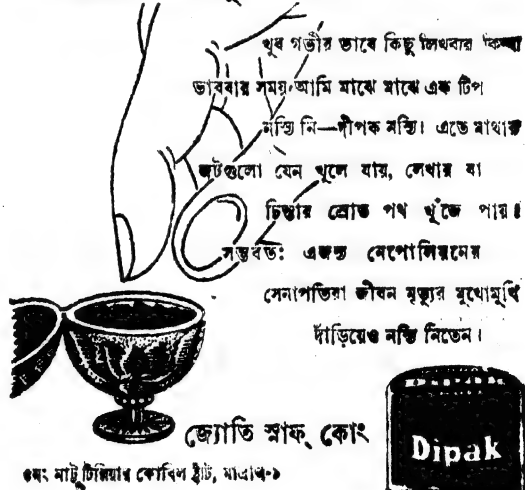 খুব গভীর ভাবে কিছু লিখবার কিম্বা
ভাববার সময় আমি মাঝে মাঝে এক টিপ
নস্যি নি—দীপক নস্যি। এতে মাথার
জটগুলো যেন খুলে যায়, লেখার বা
চিন্তার স্রোত পথ খুঁজে পায়।
সম্ভবত: এজন্য নেপোলিয়নের
সেনাপতিরা জীবন মৃত্যুর মুখোমুখি
দাঁড়িয়েও নস্যি নিতেন।
জ্যোতি স্নাফ্ কোং
Dipak
নং মাটু টিরিয়ার কোবিল ষ্ট্রীট, মাদ্রাজ-১